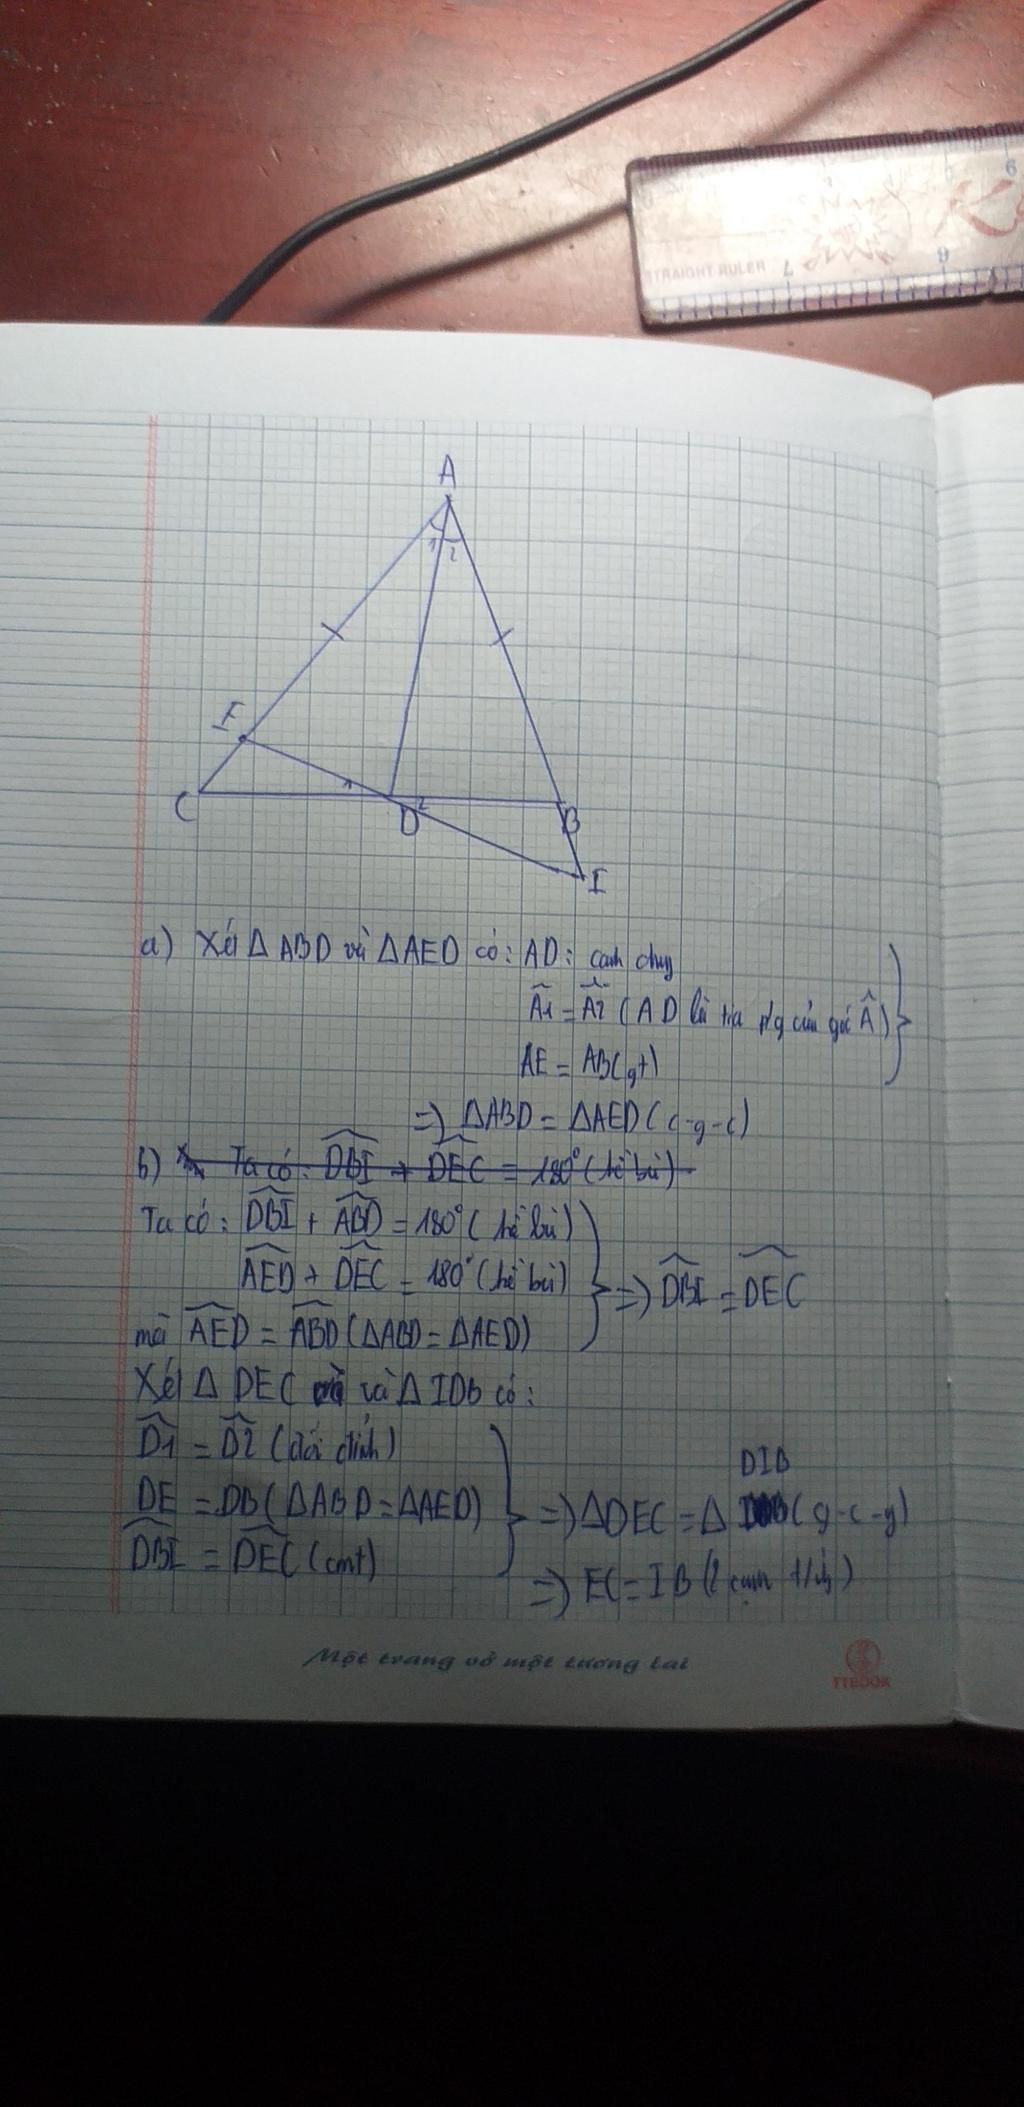 STRAIGHT RULER
7
8
6
9
A
1
2
E
1
C
D
2
B
I
a) Xét Δ ABD và Δ AED có: AD: cạnh chung
Â1 = Â2 (AD là tia p/g của góc Â)
AE = AB (gt)
=> ΔABD = ΔAED (c-g-c)
b) Ta có: DBI + DEC = 180° (kề bù)
Ta có: DBI + ABD = 180° (kề bù)
AED + DEC = 180° (kề bù) => DBI = DEC
mà AED = ABD (ΔABD = ΔAED)
Xét Δ DEC và Δ IDB có:
D1 = D2 (đối đỉnh)
DIB
DE = DB (ΔABD = ΔAED) => ΔDEC = Δ (g-c-g)
DBI = DEC (cmt)
=> EC = IB (2 cạnh t/ứ)
Một trang vở một tương lai
TTBOOK